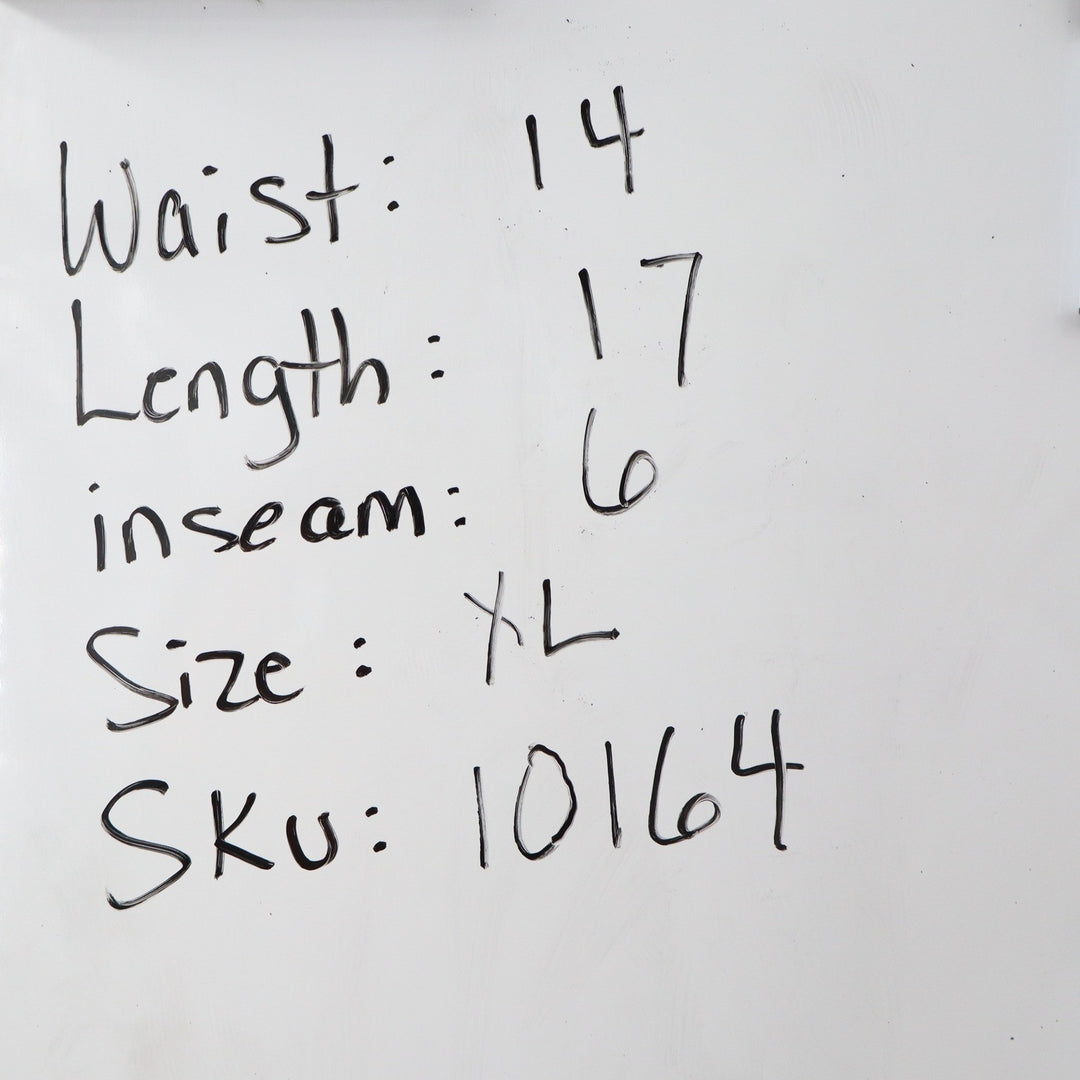 Waist: 14
Length: 17
inseam: 6
Size: XL
SKU: 10164